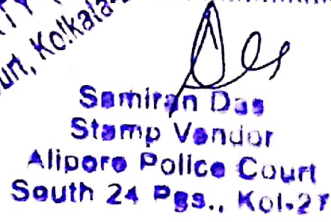 urt, Kolkata-
Samiran Das
Stamp Vendor
Alipore Police Court
South 24 Pgs., Kol-27